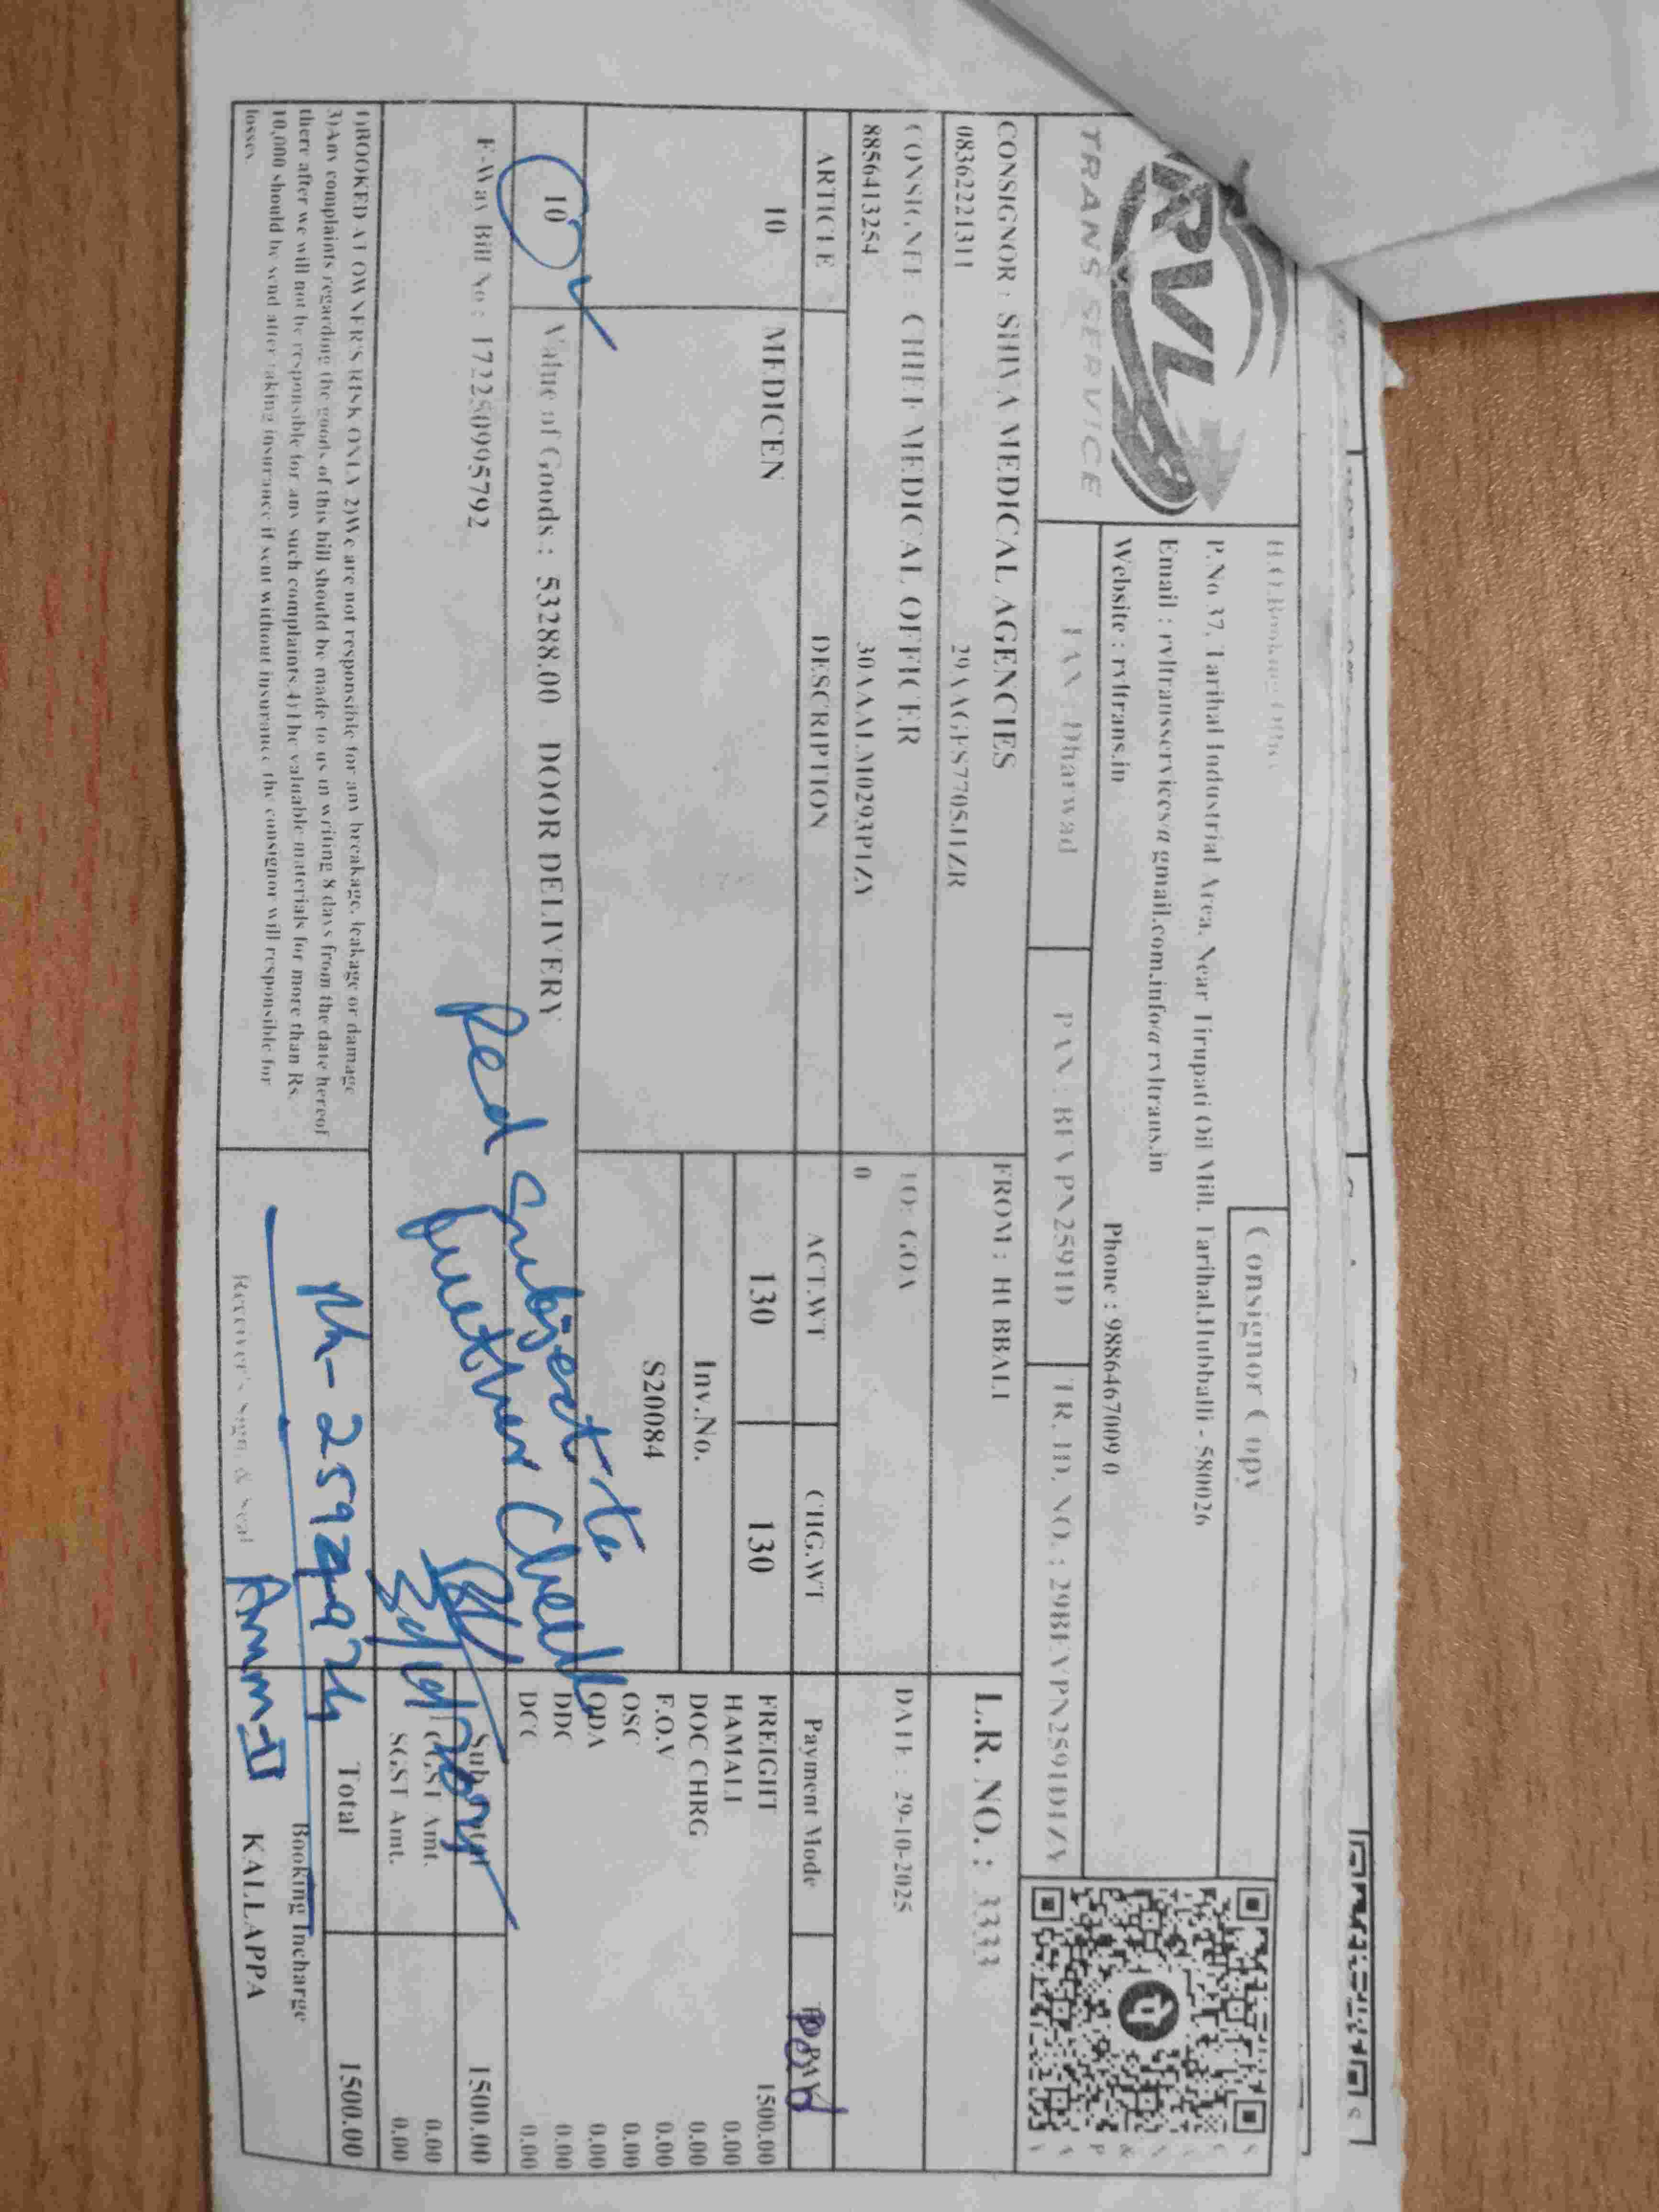 RVL
TRANS SERVICE
Consignor Copy
P.No 37, Tarihal Industrial Area, Near Tirupati Oil Mill, Tarihal,Hubballi - 580026
Email : rvltransservices@gmail.com,info@rvltrans.in
Website : rvltrans.in
Phone : 9886467009 0
TAX Dharwad
CONSIGNOR : SHIVA MEDICAL AGENCIES
FROM : HUBBALI
L.R. NO. : 3333
08362221311
CONSIGNEE : CHIEF MEDICAL OFFICER
TO: GOA
DATE : 29-10-2025
8856413254
0
ARTICLE DESCRIPTION ACT.WT CHG.WT Payment Mode
Paid
10 MEDICEN 130 130
FREIGHT 1500.00
HAMALI 0.00
Inv.No.
DOC CHRG 0.00
S20084
F.O.V 0.00
OSC 0.00
ODA 0.00
DDC 0.00
DCC 0.00
10 Value of Goods : 53288.00 DOOR DELIVERY
E-Way Bill No : 172250995792
Red subject to
further Check
Sub Total 1500.00
CGST Amt. 0.00
SGST Amt. 0.00
Total 1500.00
1)BOOKED AT OWNER'S RISK ONLY 2)We are not responsible for any breakage, leakage or damage
3)Any complaints regarding the goods of this bill should be made to us in writing 8 days from the date hereof
there after we will not be responsible for any such complaints.4)The valuable materials for more than Rs
10,000 should be send after taking insurance if sent without insurance the consignor will responsible for
losses.
Receiver's Sign. & Seal
Booking Incharge
KALLAPPA